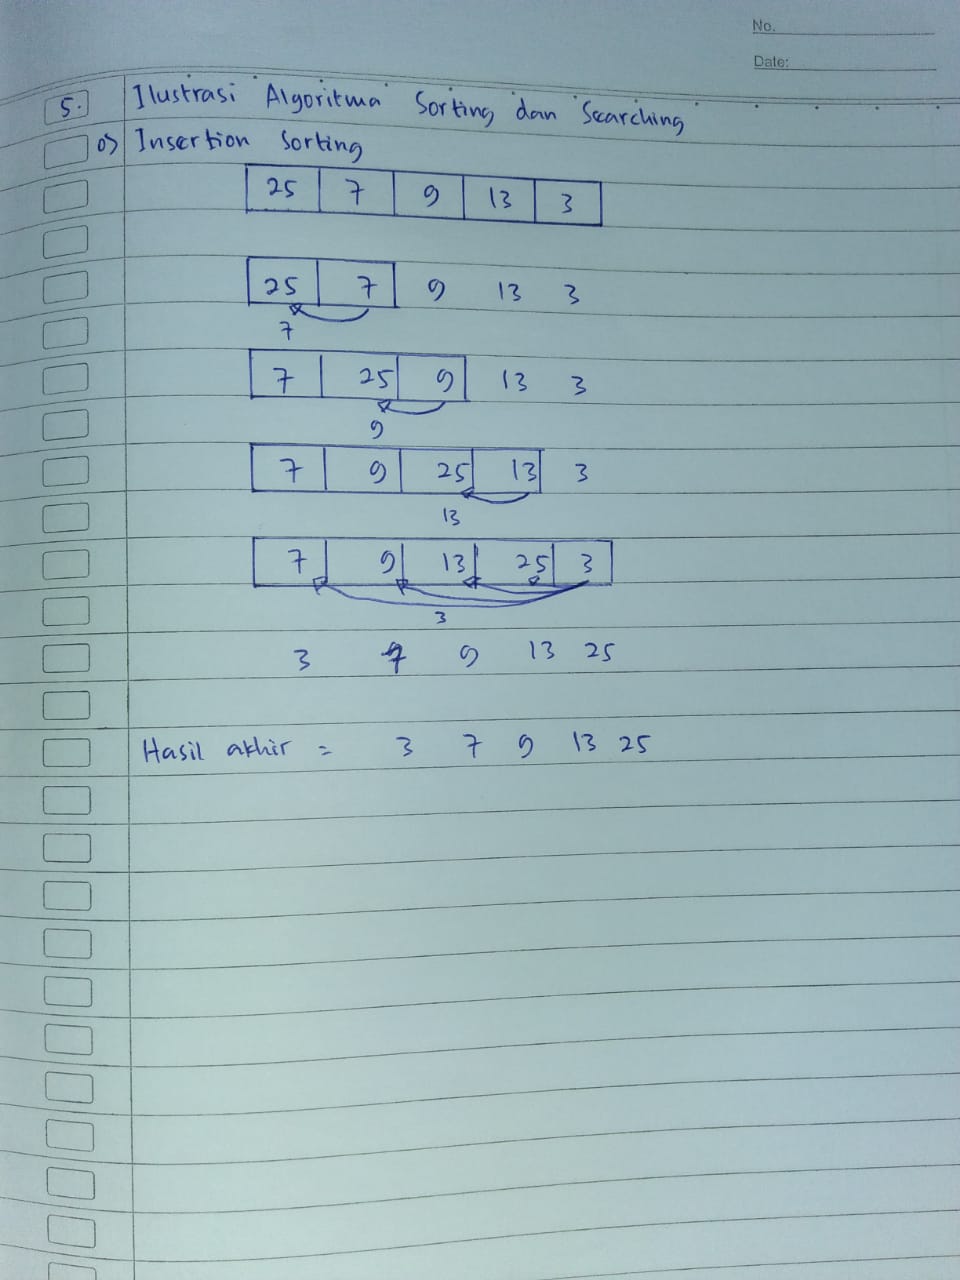 No.
Date:
5. Ilustrasi Algoritma Sorting dan Searching
o> Insertion Sorting
25 7 9 13 3
25 7 9 13 3
7
7 25 9 13 3
9
7 9 25 13 3
13
7 9 13 25 3
3
3 7 9 13 25
Hasil akhir = 3 7 9 13 25